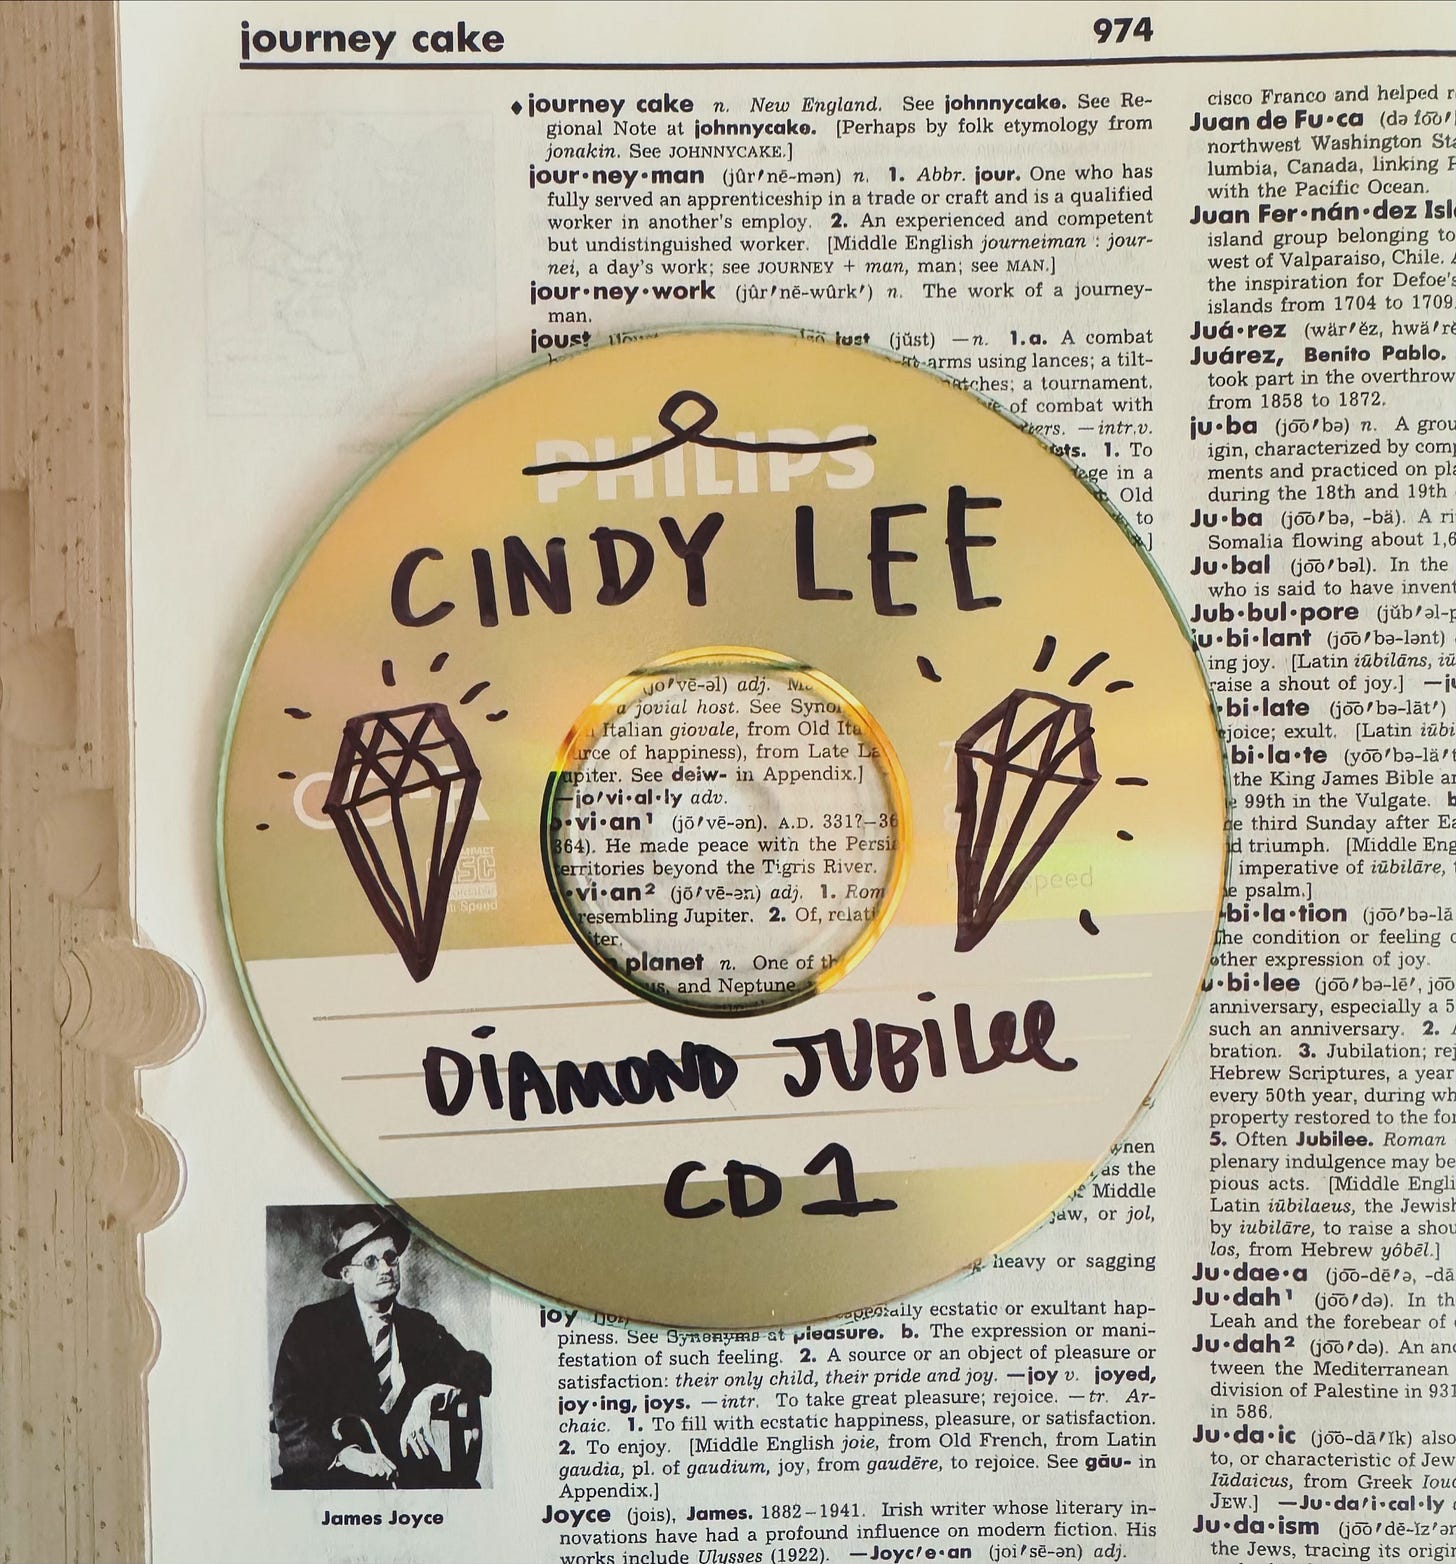 journey cake
974
♦journey cake n. New England. See johnnycake. See Re-
gional Note at johnnycake. [Perhaps by folk etymology from
jonakin. See JOHNNYCAKE.]
jour·ney·man (jûr′nē-mən) n. 1. Abbr. jour. One who has
fully served an apprenticeship in a trade or craft and is a qualified
worker in another's employ. 2. An experienced and competent
but undistinguished worker. [Middle English journeiman : jour-
nei, a day's work; see JOURNEY + man, man; see MAN.]
jour·ney·work (jûr′nē-wûrk′) n. The work of a journey-
man.
joust just (jŭst) —n. 1.a. A combat
arms using lances; a tilt-
matches; a tournament.
of combat with
—intr.v.
1. To
in a
Old
to
PHILIPS
CINDY LEE
(jō′vē-əl) adj.
a jovial host. See
Italian giovale, from Old
of happiness), from Late
See deiw- in Appendix.]
—jo′vi·al·ly adv.
·vi·an¹ (jō′vē-ən). A.D. 331?–
364). He made peace with the
territories beyond the Tigris River.
·vi·an² (jō′vē-ən) adj. 1.
resembling Jupiter. 2. Of,
planet n. One of
and Neptune
speed
DiAMOND JUBiLee
CD1
as the
Middle
or jol,
heavy or sagging
James Joyce
joy especially ecstatic or exultant hap-
piness. See Synonyms at pleasure. b. The expression or mani-
festation of such feeling. 2. A source or an object of pleasure or
satisfaction: their only child, their pride and joy. —joy v. joyed,
joy·ing, joys. —intr. To take great pleasure; rejoice. —tr. Ar-
chaic. 1. To fill with ecstatic happiness, pleasure, or satisfaction.
2. To enjoy. [Middle English joie, from Old French, from Latin
gaudia, pl. of gaudium, joy, from gaudēre, to rejoice. See gāu- in
Appendix.]
Joyce (jois), James. 1882–1941. Irish writer whose literary in-
novations have had a profound influence on modern fiction. His
works include Ulysses (1922). —Joyc′e·an (joi′sē-ən) adj.
cisco Franco and helped
Juan de Fu·ca (də
northwest Washington
lumbia, Canada, linking
with the Pacific Ocean.
Juan Fer·nán·dez
island group belonging to
west of Valparaiso, Chile.
the inspiration for Defoe's
islands from 1704 to 1709
Juá·rez (wär′ĕz,
Juárez, Benito Pablo.
took part in the overthrow
from 1858 to 1872.
ju·ba (jōō′bə) n. A
igin, characterized by
ments and practiced on
during the 18th and 19th
Ju·ba (jōō′bə, -bä). A
Somalia flowing about
Ju·bal (jōō′bəl). In the
who is said to have
Jub·bul·pore
ju·bi·lant (jōō′bə-lənt)
ing joy. [Latin iūbilāns,
raise a shout of joy.]
·bi·late (jōō′bə-lāt′)
rejoice; exult. [Latin
·bi·la·te
the King James Bible
99th in the Vulgate.
third Sunday after
triumph. [Middle
imperative of iūbilāre,
psalm.]
·bi·la·tion
The condition or feeling
other expression of joy.
·bi·lee (jōō′bə-lē′,
anniversary, especially a
such an anniversary. 2.
bration. 3. Jubilation;
Hebrew Scriptures, a year
every 50th year, during
property restored to the
5. Often Jubilee. Roman
plenary indulgence may be
pious acts. [Middle
Latin iūbilaeus, the Jewish
by iubilāre, to raise a
los, from Hebrew yôbēl.]
Ju·dae·a (jōō-dē′ə,
Ju·dah¹ (jōō′də). In
Leah and the forebear of
Ju·dah² (jōō′də). An
tween the Mediterranean
division of Palestine in
in 586.
Ju·da·ic (jōō-dā′ĭk) also
to, or characteristic of
Iūdaicus, from Greek
JEW.] —Ju·da′i·cal·ly
Ju·da·ism
the Jews, tracing its